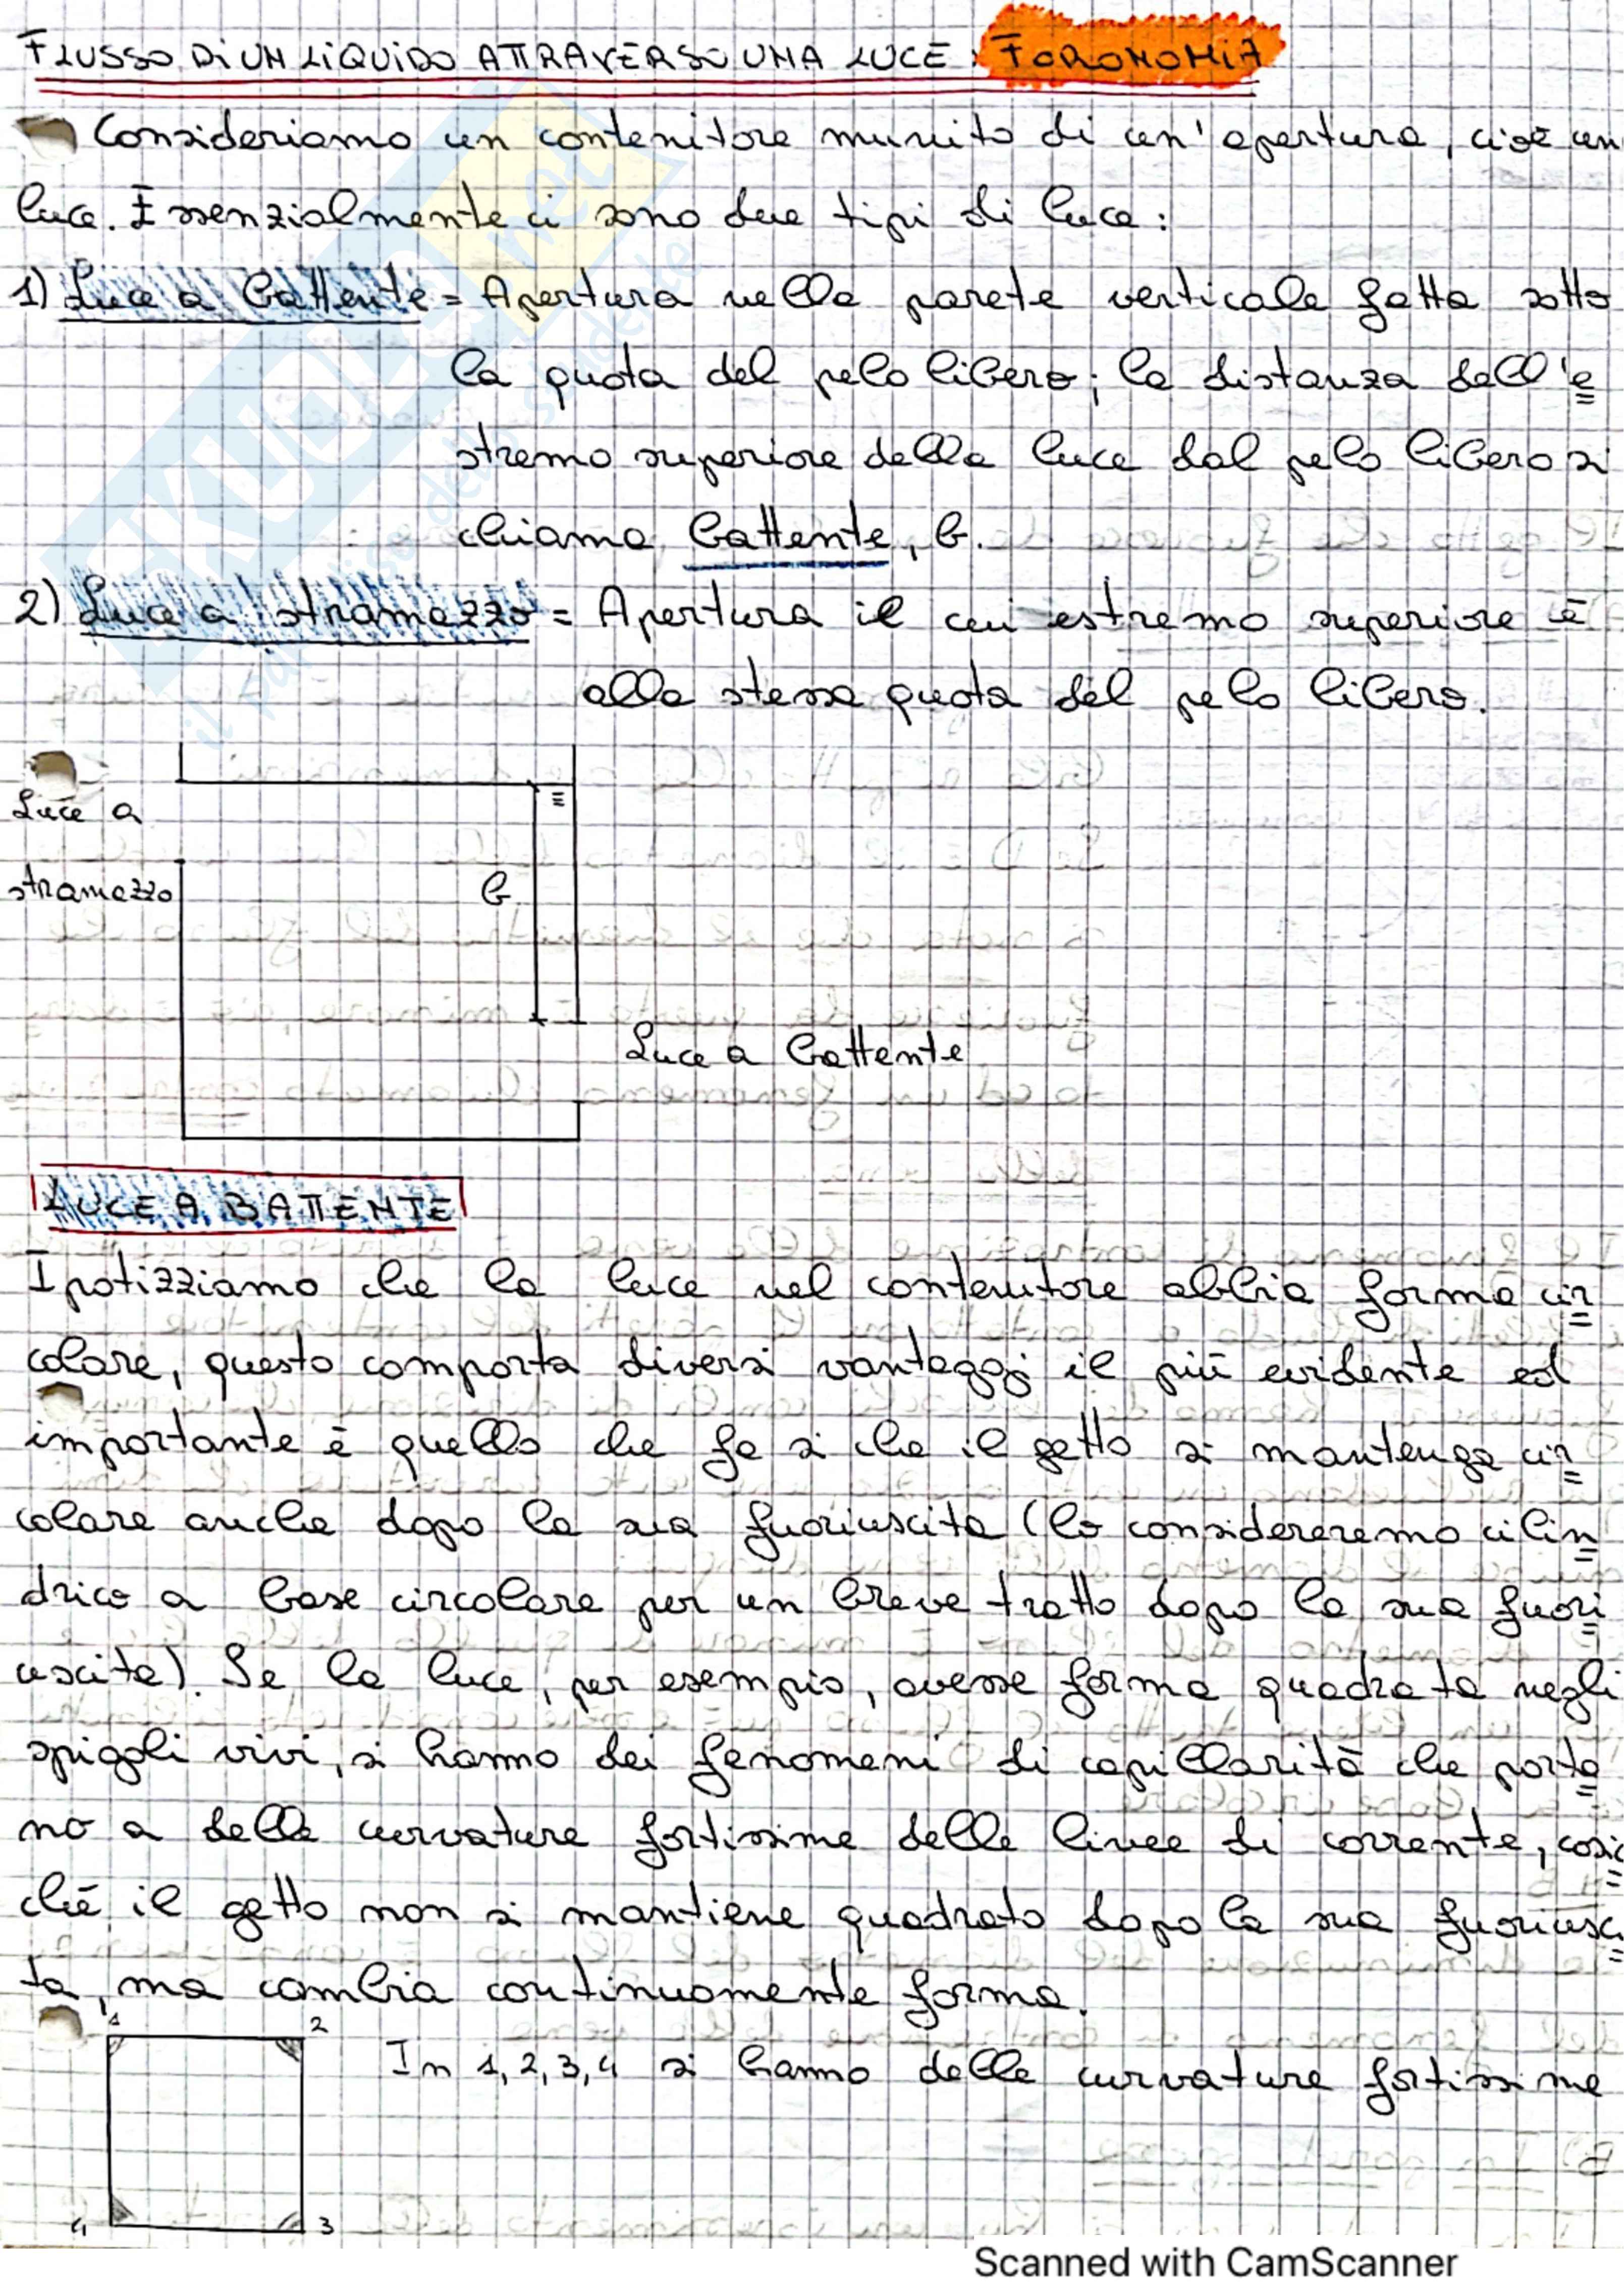 FLUSSO DI UN LIQUIDO ATTRAVERSO UNA LUCE: FORONOMIA
Consideriamo un contenitore munito di un'apertura, cioè un
luce. Essenzialmente ci sono due tipi di luce:
1) Luce a battente = Apertura nella parete verticale fatta sotto
la quota del pelo libero; la distanza dell'e
stremo superiore della luce dal pelo libero si
chiama battente, b.
2) Luce a stramazzo = Apertura il cui estremo superiore è
alla stessa quota del pelo libero.
Luce a
stramazzo
b
Luce a battente
LUCE A BATTENTE
Ipotizziamo che la luce nel contenitore abbia forma cir
colare, questo comporta diversi vantaggi il più evidente ed
importante è quello che fa si che il getto si mantenga cir
colare anche dopo la sua fuoriuscita (lo considereremo cilin
drico a base circolare per un breve tratto dopo la sua fuori
uscita). Se la luce, per esempio, avesse forma quadrata negli
spigoli vivi, si hanno dei fenomeni di capillarità che porta
no a delle curvature fortissime delle linee di corrente, cosic
ché il getto non si mantiene quadrato dopo la sua fuoriusci
ta, ma cambia continuamente forma.
1 2
In 1, 2, 3, 4 si hanno delle curvature fortissime
4 3
Scanned with CamScanner
SKUOLA.net
il paradiso dello studente